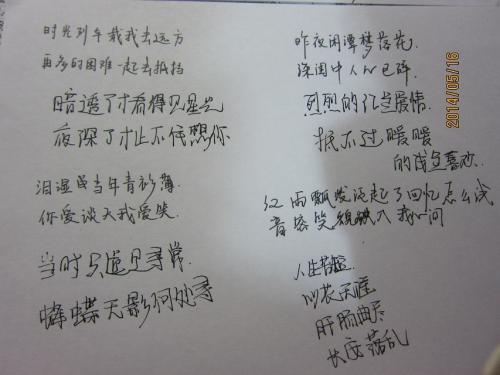 时光列车载我去远方
再多的困难一起去抵挡
暗透了才看得见星光
夜深了才止不住想你
泪湿当年青衫薄
你爱谈天我爱笑
当时只道是寻常
蝴蝶无影何处寻
昨夜闲潭梦落花
深闺中人心已碎
烈烈的红尘爱情
抵不过暖暖
的成熟喜欢
红雨瓢泼泛起了回忆怎么
音容笑貌 入我心间
人生
天涯
肝肠曲尽
长安落乱
2014/05/16